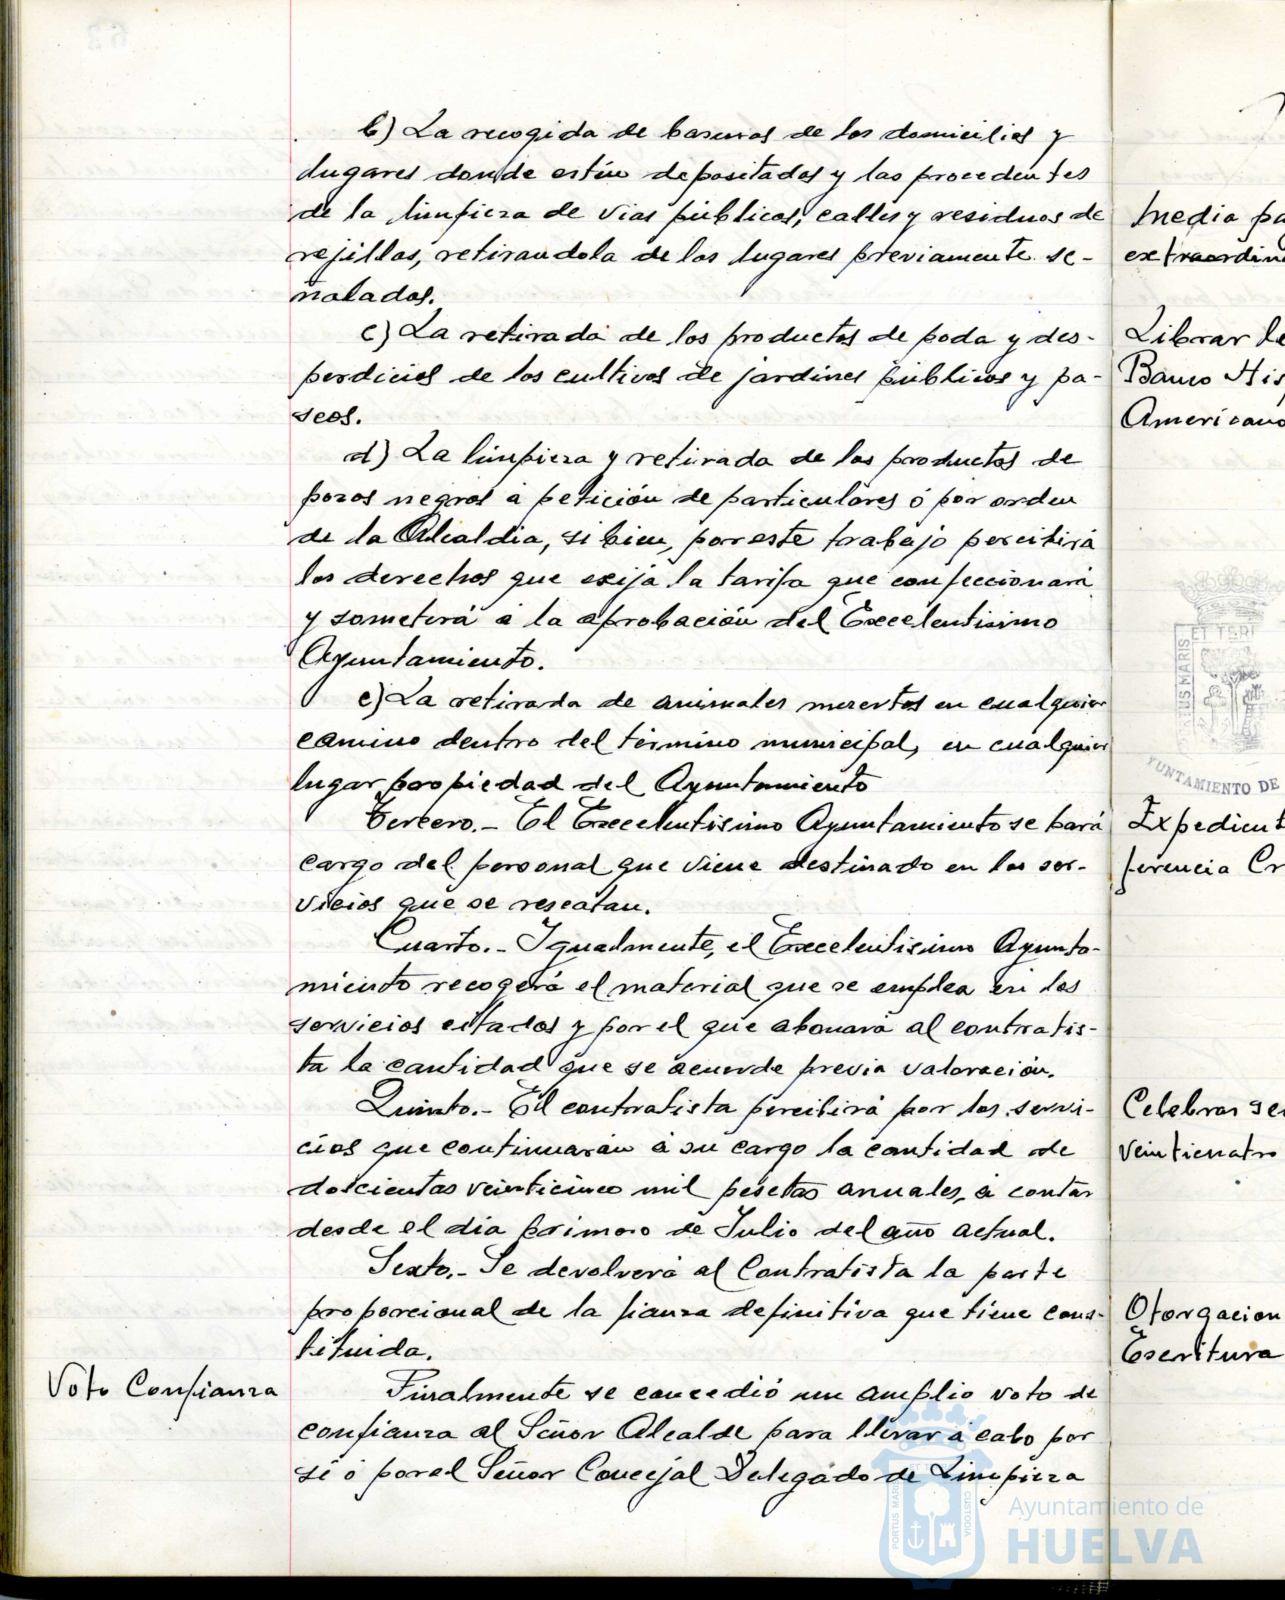 b) La recogida de basuras de los domicilios y
lugares donde estén depositadas y las procedentes
de la limpieza de vias públicas, calles y residuos de
rejillas, retirandola de los lugares previamente se-
ñalados.
c) La retirada de los productos de poda y des-
perdicios de los cultivos de jardines públicos y pa-
seos.
d) La limpieza y retirada de los productos de
pozos negros á petición de particulares ó por orden
de la Alcaldia, si bien, por este trabajo percibirá
los derechos que exija la tarifa que confeccionará
y someterá á la aprobación del Excelentisimo
Ayuntamiento.
e) La retirada de animales muertos en cualquier
camino dentro del término municipal, en cualquier
lugar propiedad del Ayuntamiento
Tercero.- El Excelentisimo Ayuntamiento se hará
cargo del personal que viene destinado en los ser-
vicios que se rescatan.
Cuarto.- Igualmente, el Excelentisimo Ayunta-
miento recogerá el material que se emplea en los
servicios citados y por el que abonará al contratis-
ta la cantidad que se acuerde previa valoración.
Quinto.- El contratista percibirá por los servi-
cios que continuarán á su cargo la cantidad de
doscientas veinticinco mil pesetas anuales, á contar
desde el dia primero de Julio del año actual.
Sexto.- Se devolverá al Contratista la parte
proporcional de la fianza definitiva que tiene cons-
tituida.
Voto Confianza
Finalmente se concedió un amplio voto de
confianza al Señor Alcalde para llevar á cabo por
sí ó por el Señor Concejal Delegado de Limpieza
Media pa
extraordina
Librar le
Banco His
Americano
ET TERR
PORTUS MARIS
YUNTAMIENTO DE
Expedient
ferencia Cr
Celebrar se
veinticuatro
Otorgacion
Escritura
PORTUS MARIS
CUSTODIA
Ayuntamiento de
HUELVA